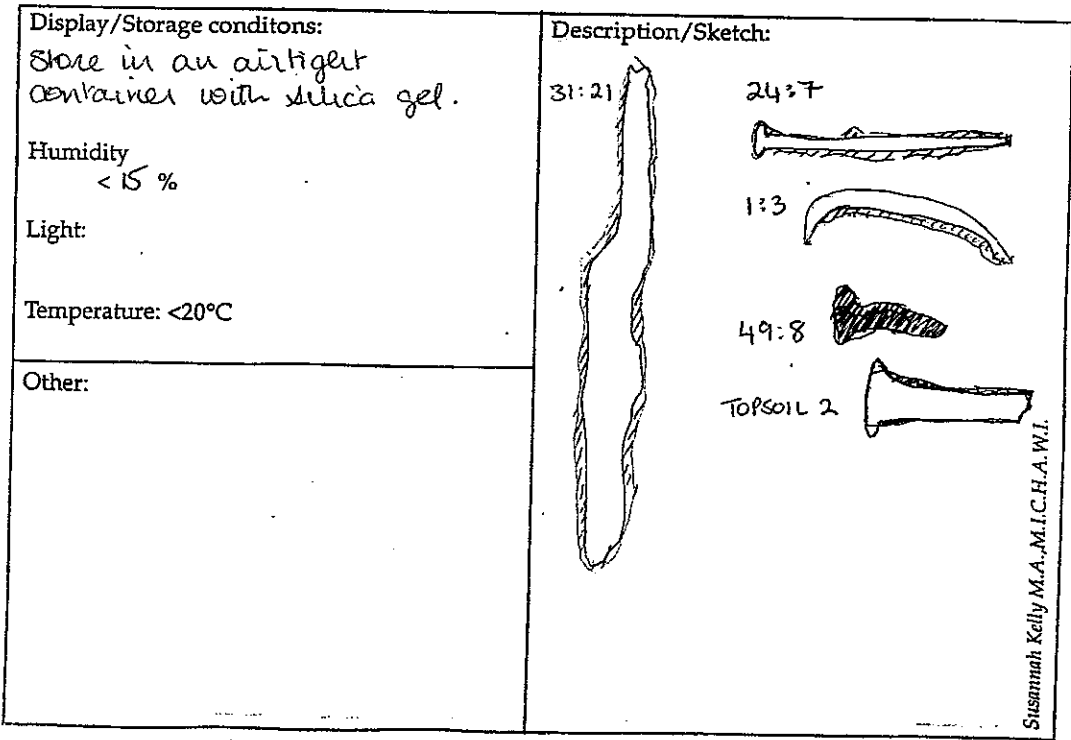 Display/Storage conditons:
Store in an airtight
container with silica gel.
Humidity
<15 %
Light:
Temperature: <20°C
Other:
Description/Sketch:
31:21
24:7
1:3
49:8
TOPSOIL 2
Susannah Kelly M.A.,M.I.C.H.A.W.I.